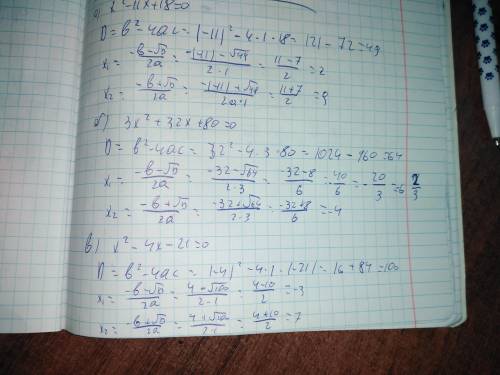 а) x² - 11x + 18 = 0
D = b² - 4ac = (-11)² - 4 · 1 · 18 = 121 - 72 = 49
x₁ = (-b - √D)/2a = (-(-11) - √49)/(2 · 1) = (11 - 7)/2 = 2
x₂ = (-b + √D)/2a = (-(-11) + √49)/(2a · 1) = (11 + 7)/2 = 9
б) 3x² + 32x + 80 = 0
D = b² - 4ac = 32² - 4 · 3 · 80 = 1024 - 960 = 64
x₁ = (-b - √D)/2a = (-32 - √64)/(2 · 3) = (-32 - 8)/6 = -40/6 = -20/3 = 6 2/3
x₂ = (-b + √D)/2a = (-32 + √64)/(2 · 3) = (-32 + 8)/6 = -4
в) x² - 4x - 21 = 0
D = b² - 4ac = (-4)² - 4 · 1 · (-21) = 16 + 84 = 100
x₁ = (-b - √D)/2a = (4 - √100)/(2 · 1) = (4 - 10)/2 = -3
x₂ = (-b + √D)/2a = (4 + √100)/(2 · 1) = (4 + 10)/2 = 7